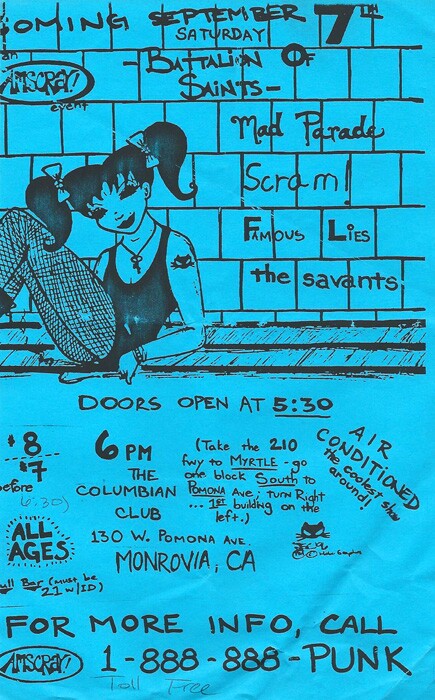 COMING SEPTEMBER 7TH
SATURDAY
an
AMSCRAY!
event
-BATTALION OF
SAINTS-
Mad Parade
Scram!
FAMOUS LIES
the savants
DOORS OPEN AT 5:30
$8
$7
before
6:30)
6 PM
THE
COLUMBIAN
CLUB
(Take the 210
fwy to MYRTLE - go
one block South to
POMONA Ave; turn Right
... 1ST building on the
left.)
AIR
CONDITIONED
the coolest show
around!
ALL
AGES
130 W. POMONA AVE.
MONROVIA, CA
Full Bar (must be
21 w/ID)
FOR MORE INFO, CALL
AMSCRAY! 1-888-888-PUNK
Toll Free